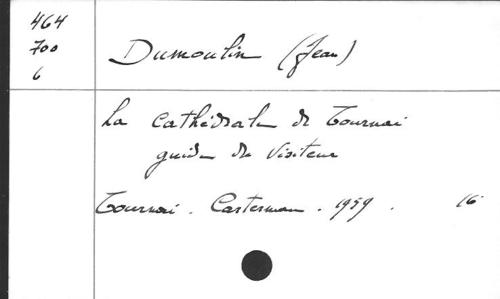 464
700
6
Dumoulin (Jean)
La Cathédrale de Tournai
guide du Visiteur
Tournai. Casterman. 1959. 16